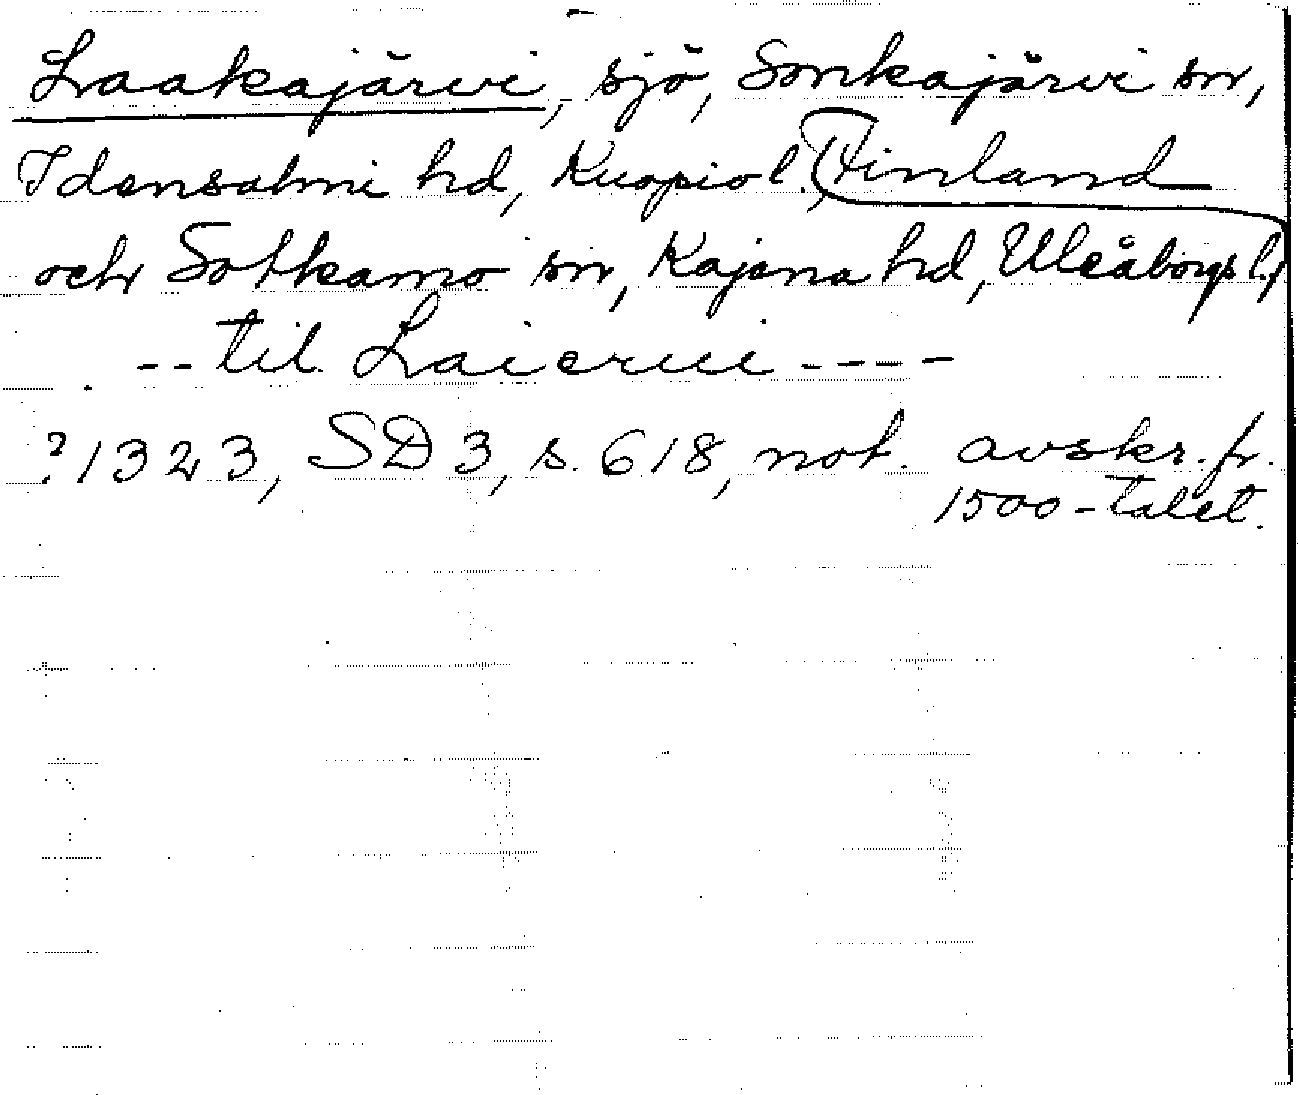 Laakajärvi, sjö, Sonkajärvi sn,
Idensalmi hd, Kuopio l., Finland
och Sotkamo sn, Kajana hd, Uleåborgs l.,
-- til Laierui ----
?1323, SD 3, s. 618, not. avskr. fr.
1500-talet.